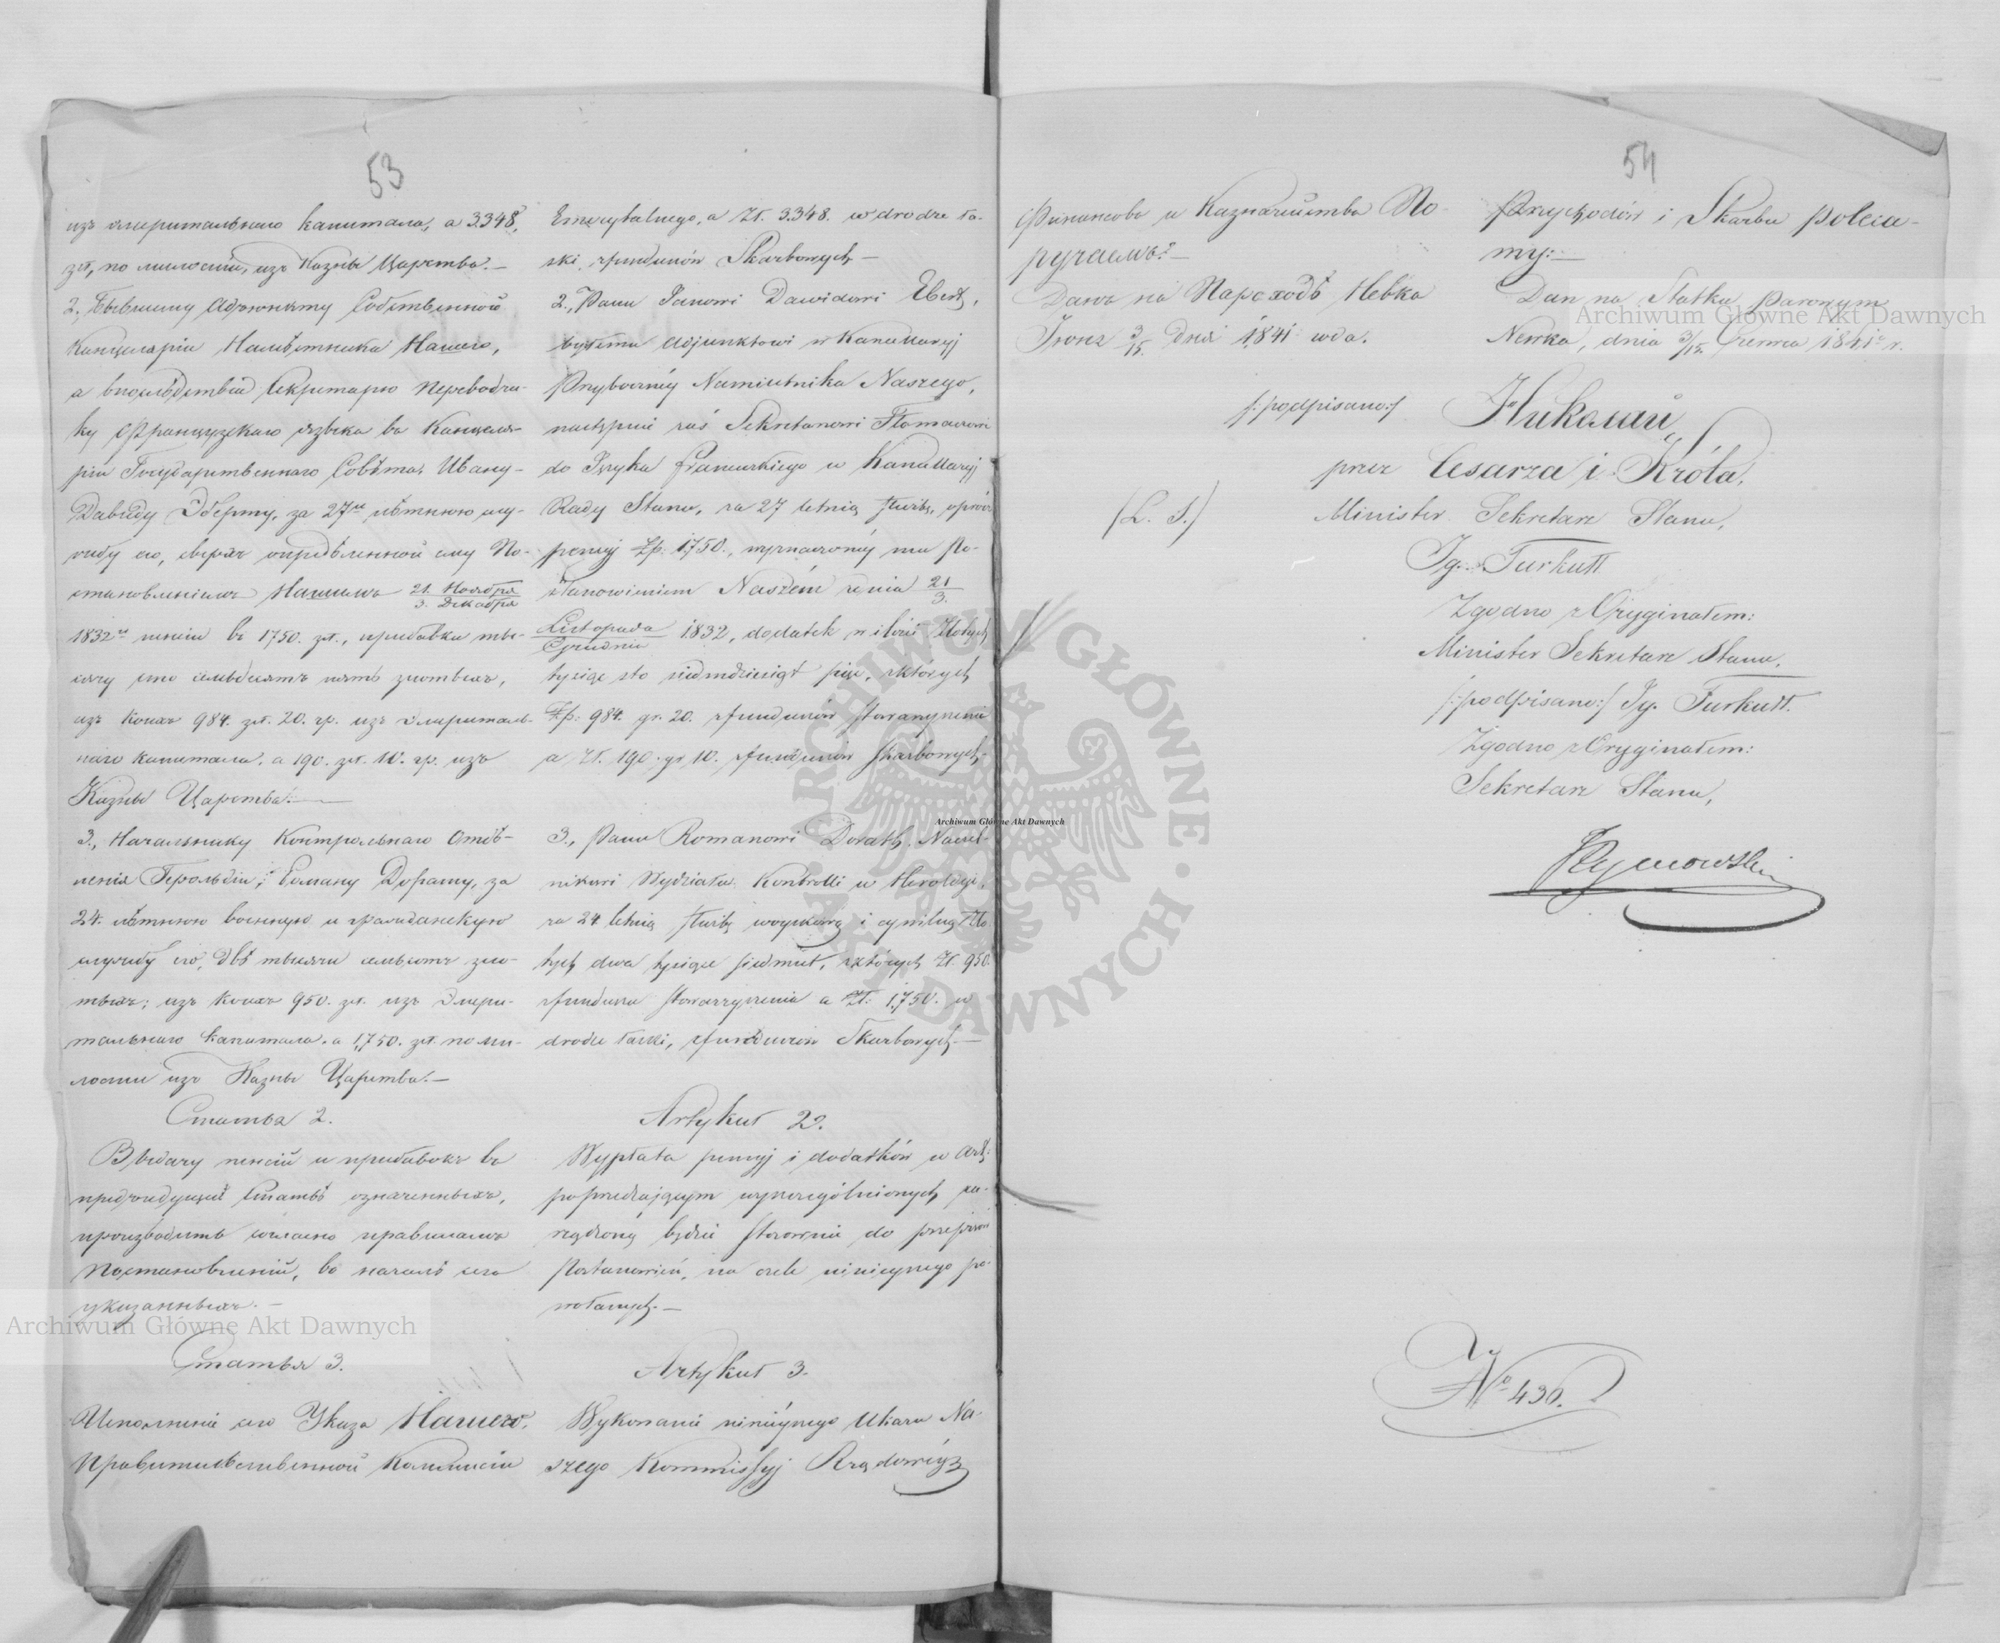 53
изъ эмеритальнаго капитала, а 3348.
зл., по милости, изъ Казны Царства.—
2., Бывшему Адъюнкту Собственной
Канцеляріи Намѣстника Нашего,
а впослѣдствіи Секретарю Переводчи-
ку Французскаго языка въ Канцеля-
ріи Государственнаго Совѣта, Ивану-
Давиду Эберту, за 27ми лѣтнюю слу-
жбу его, сверхъ опредѣленной ему По-
становленіемъ Нашимъ 21. Ноября / 3. Декабря
1832го пенсіи въ 1750. зл., прибавки ты-
сячу сто семьдесятъ пять злотыхъ,
изъ коихъ 984. зл. 20. гр. изъ эмериталь-
наго капитала, а 190. зл. 10. гр. изъ
Казны Царства.—
3., Начальнику Контрольнаго Отдѣ-
ленія Герольдіи, Роману Дорату, за
24. лѣтнюю военную и гражданскую
службу его, двѣ тысячи семьсотъ зло-
тыхъ; изъ коихъ 950. зл. изъ эмери-
тальнаго капитала, а 1,750. зл. по ми-
лости изъ Казны Царства.—
Статья 2.
Выдачу пенсій и прибавокъ въ
предъидущей Статьѣ означенныхъ,
производить согласно правиламъ
Постановленій, въ началѣ сего
указанныхъ.—
Статья 3.
Исполненіе сего Указа Нашего,
Правительственной Коммисіи
Emerytalnego, a Zł. 3.348. w drodze ła-
ski, z funduszów Skarbowych—
2., Panu Janowi Dawidowi Ebert,
byłemu Adjunktowi w Kancellaryi
Przybocznéy Namiestnika Naszego,
następnie zaś Sekretarzowi Tłomaczowi
do Języka francuzkiego w Kancellaryi
Rady Stanu, za 27 letnią służbę, oprócz
pensyi Zp. 1,750., wyznaczonéy mu Po-
stanowieniem Naszém z dnia 21/3.
Listopada / Grudnia 1832, dodatek w ilości Złotych
tysiąc sto siedmdziesiąt pięć, z których
Zp. 984. gr. 20. z funduszów stowarzyszenia
a Zł. 190. gr 10. z funduszów skarbowych.—
3., Panu Romanowi Doratt, Naczel-
nikowi Wydziału Kontrolli w Heroldyi,
za 24 letnią służbę woyskową i cywilną Zło-
tych dwa tysiące siedmset, z których Zł. 950.
z funduszu stowarzyszenia a Zł. 1,750. w
drodze łaski, z funduszów Skarbowych.—
Artykuł 22.
Wypłata pensyj i dodatków w Art:
poprzedzającym wyszczególnionych, za-
rządzoną będzie stosownie do przepisów
Postanowień, na czele ninieyszego po-
wołanych.—
Artykuł 3.
Wykonanie ninieyszego Ukazu Na-
szego Kommissyi Rządowéy
54
Финансовъ и Казначейства По-
ручаемъ.—
Данъ на Пароходѣ Невка
Іюня 3/15. дня 1841 года.
Przychodów i Skarbu poleca-
my:—
Dan na Statku Parowym
Newka, dnia 3/15. Czerwca 1841 r.
/:podpisano:/ Николай
przez Cesarza i Króla,
(L. S.)
Minister Sekretarz Stanu,
Ig. Turkułł
Zgodno z Oryginałem:
Minister Sekretarz Stanu,
/:podpisano:/ Ig. Turkułł.
Zgodno z Oryginałem:
Sekretarz Stanu,
No 436.
Archiwum Główne Akt Dawnych
Archiwum Główne Akt Dawnych
Archiwum Główne Akt Dawnych
ARCHIWUM GŁÓWNE AKT DAWNYCH